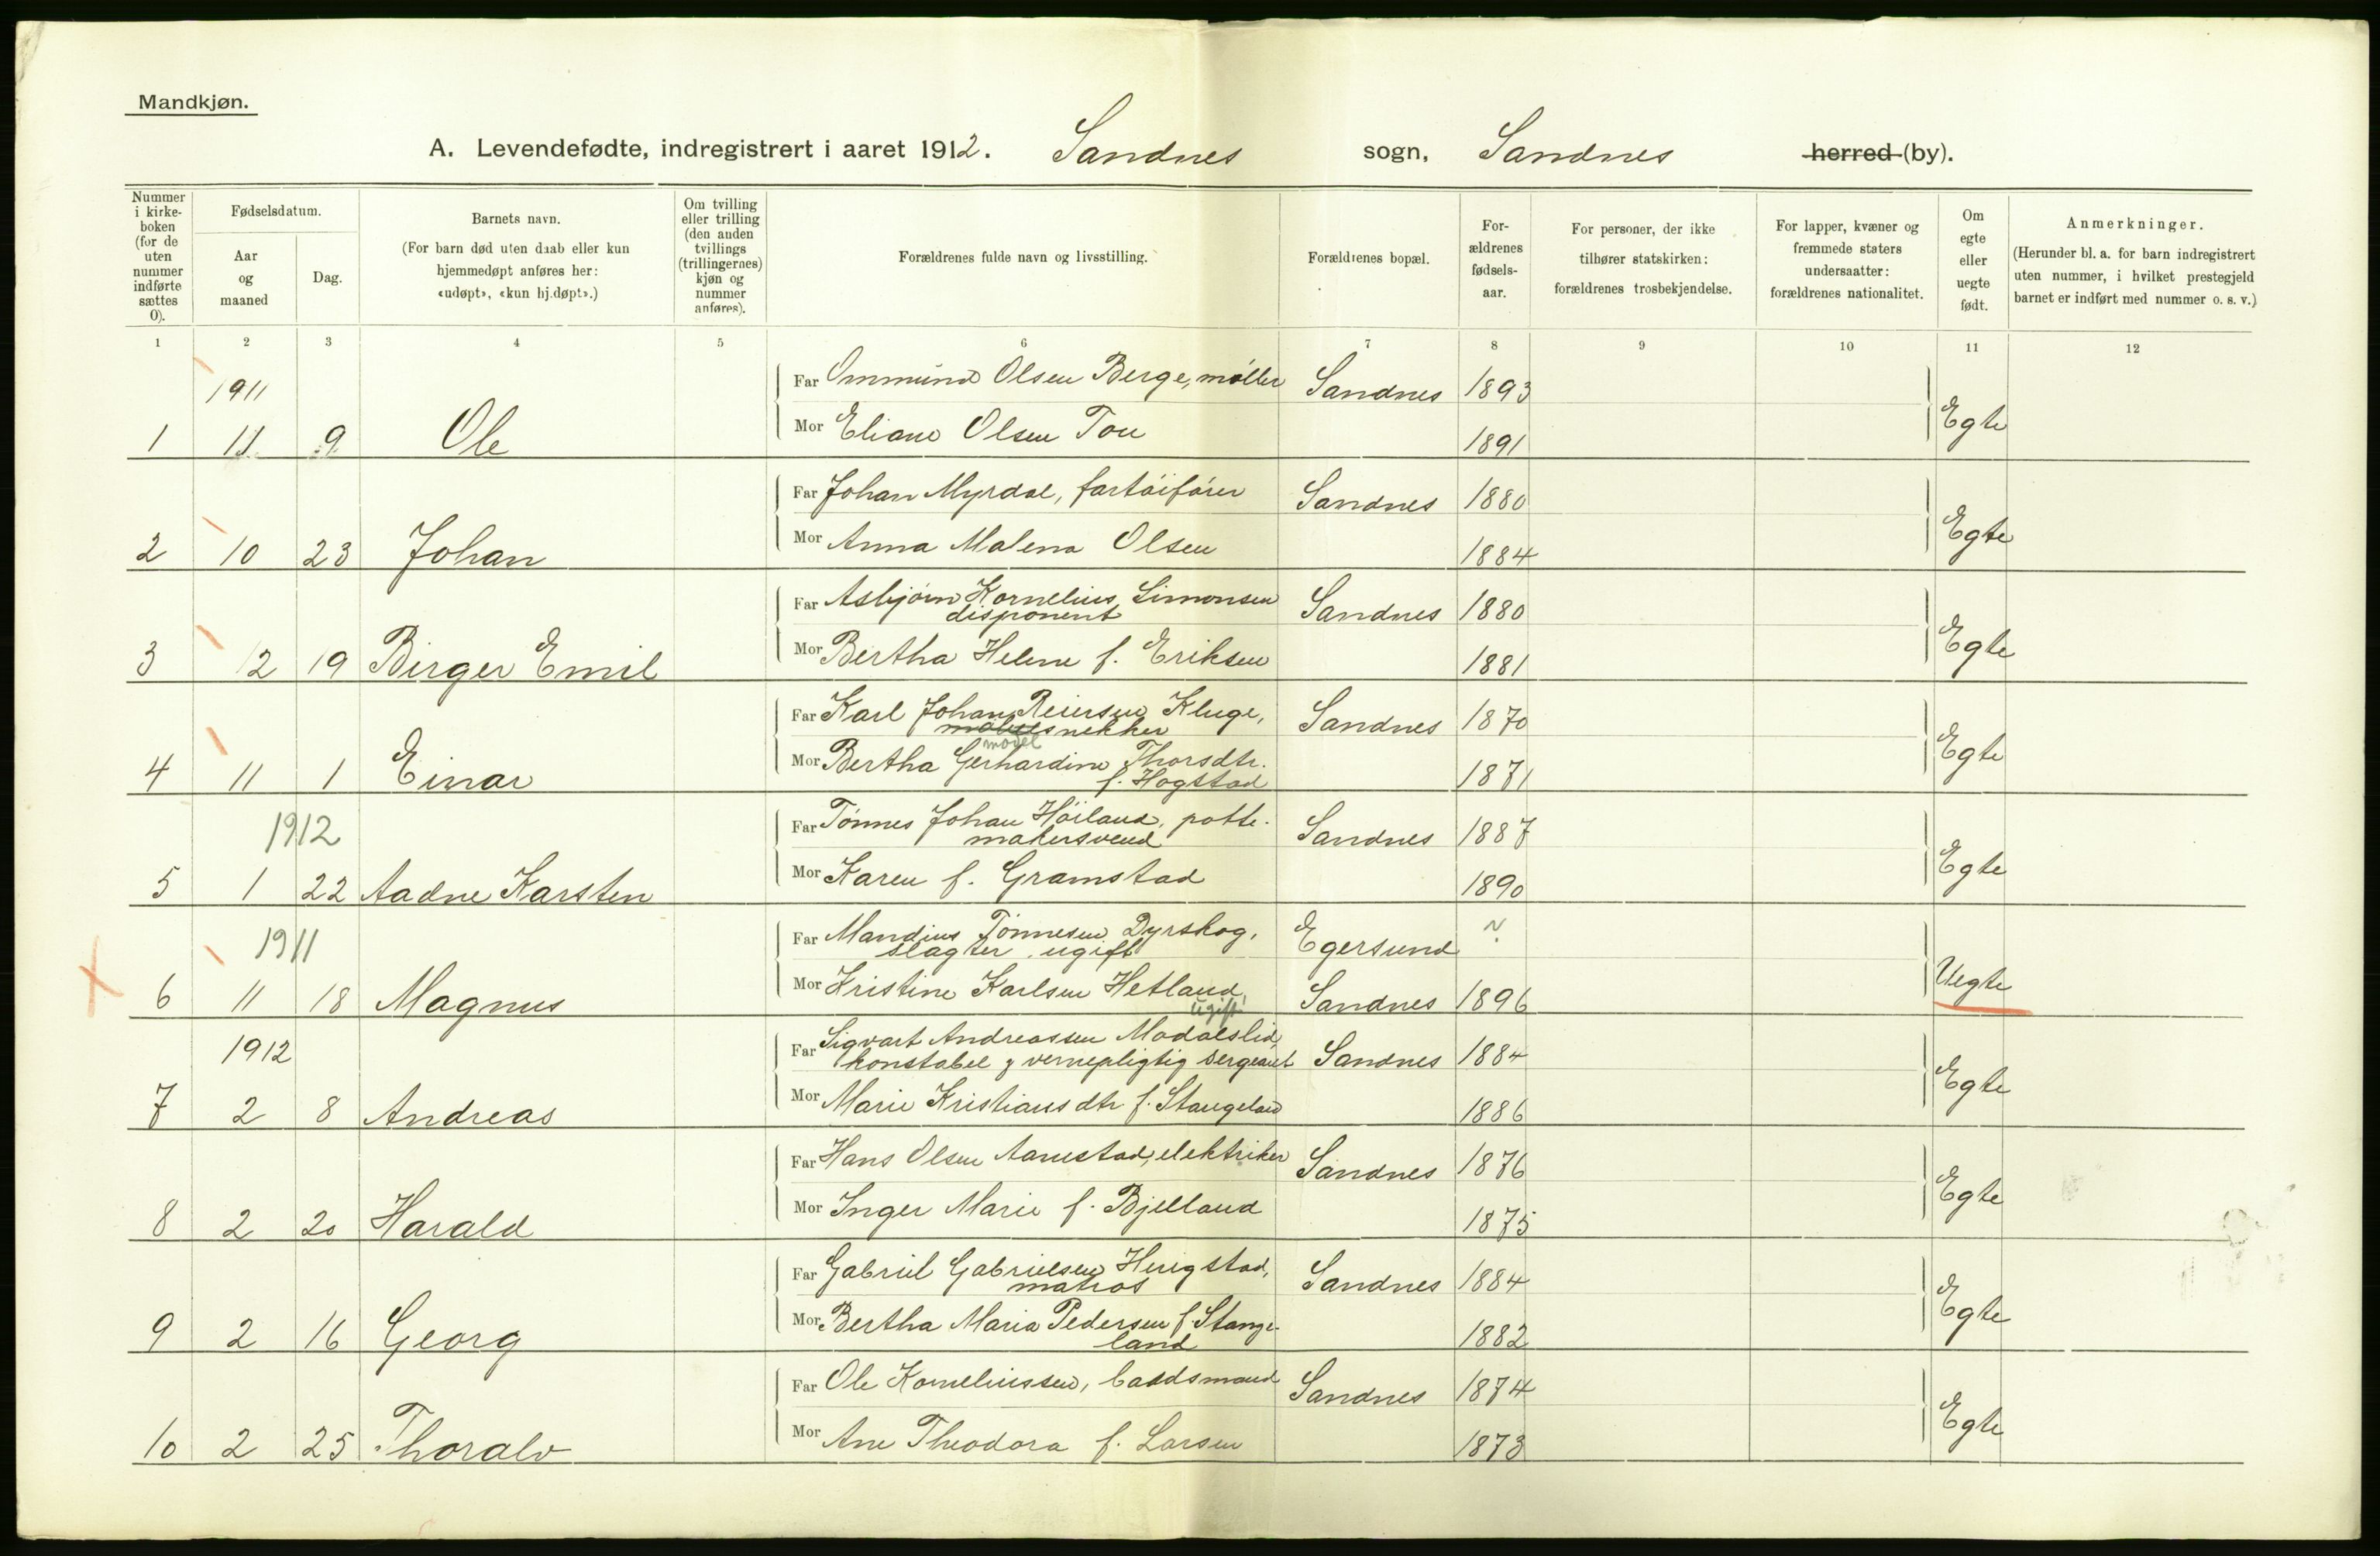 Mandkjøn.
A. Levendefødte, indregistrert i aaret 1912. Sandnes sogn, Sandnes herred (by).
Nummer i kirkeboken (for de uten nummer indførte sættes 0).
Fødselsdatum.
Aar og maaned
Dag.
Barnets navn.
(For barn død uten daab eller kun hjemmedøpt anføres her: «udøpt», «kun hj.døpt».)
Om tvilling eller trilling (den anden tvillings (trillingernes) kjøn og nummer anføres).
Forældrenes fulde navn og livsstilling.
Forældrenes bopæl.
Forældrenes fødselsaar.
For personer, der ikke tilhører statskirken: forældrenes trosbekjendelse.
For lapper, kvæner og fremmede staters undersaatter: forældrenes nationalitet.
Om egte eller uegte født.
Anmerkninger.
(Herunder bl. a. for barn indregistrert uten nummer, i hvilket prestegjeld barnet er indført med nummer o. s. v.)
1 2 3 4 5 6 7 8 9 10 11 12
1911
Far Ommund Olsen Berge, møller Sandnes 1893
1 11 9 Ole Mor Eliane Olsen Tou 1891 Egte
Far Johan Myrdal, fartøifører Sandnes 1880
2 10 23 Johan Mor Anna Malena Olsen 1884 Egte
Far Asbjørn Kornelius Simonsen Sandnes 1880
disponent
3 12 19 Birger Emil Mor Bertha Helene f. Eriksen 1881 Egte
Far Karl Johan Reiersen Kluge, Sandnes 1870
møbelsnekker
model
4 11 1 Einar Mor Bertha Gerhardine Thorsdtr. 1871 Egte
f. Hogstad
1912
Far Tönnes Johan Höiland, potte- Sandnes 1887
makersvend
5 1 22 Aadne Karsten Mor Karen f. Gramstad 1890 Egte
1911
Far Mandius Tönnesen Dyrskog, Egersund ?
slagter, ugift
6 11 18 Magnus Mor Kristine Karlsen Hetland, Sandnes 1896 Uegte
ugift
1912
Far Sigvart Andreassen Madalslid,
konstabel & vernepligtig sergeant Sandnes 1884
7 2 8 Andreas Mor Marie Kristiansdtr f. Stangeland 1886 Egte
Far Hans Olsen Aarrestad, elektriker Sandnes 1876
8 2 20 Harald Mor Inger Marie f. Bjelland 1875 Egte
Far Gabriel Gabrielsen Herigstad, Sandnes 1884
matros
9 2 16 Georg Mor Bertha Maria Pedersen f. Stange- 1882 Egte
land
Far Ole Korneliussen, baadsmand Sandnes 1874
10 2 25 Thoralv Mor Ane Theodora f. Larsen 1873 Egte